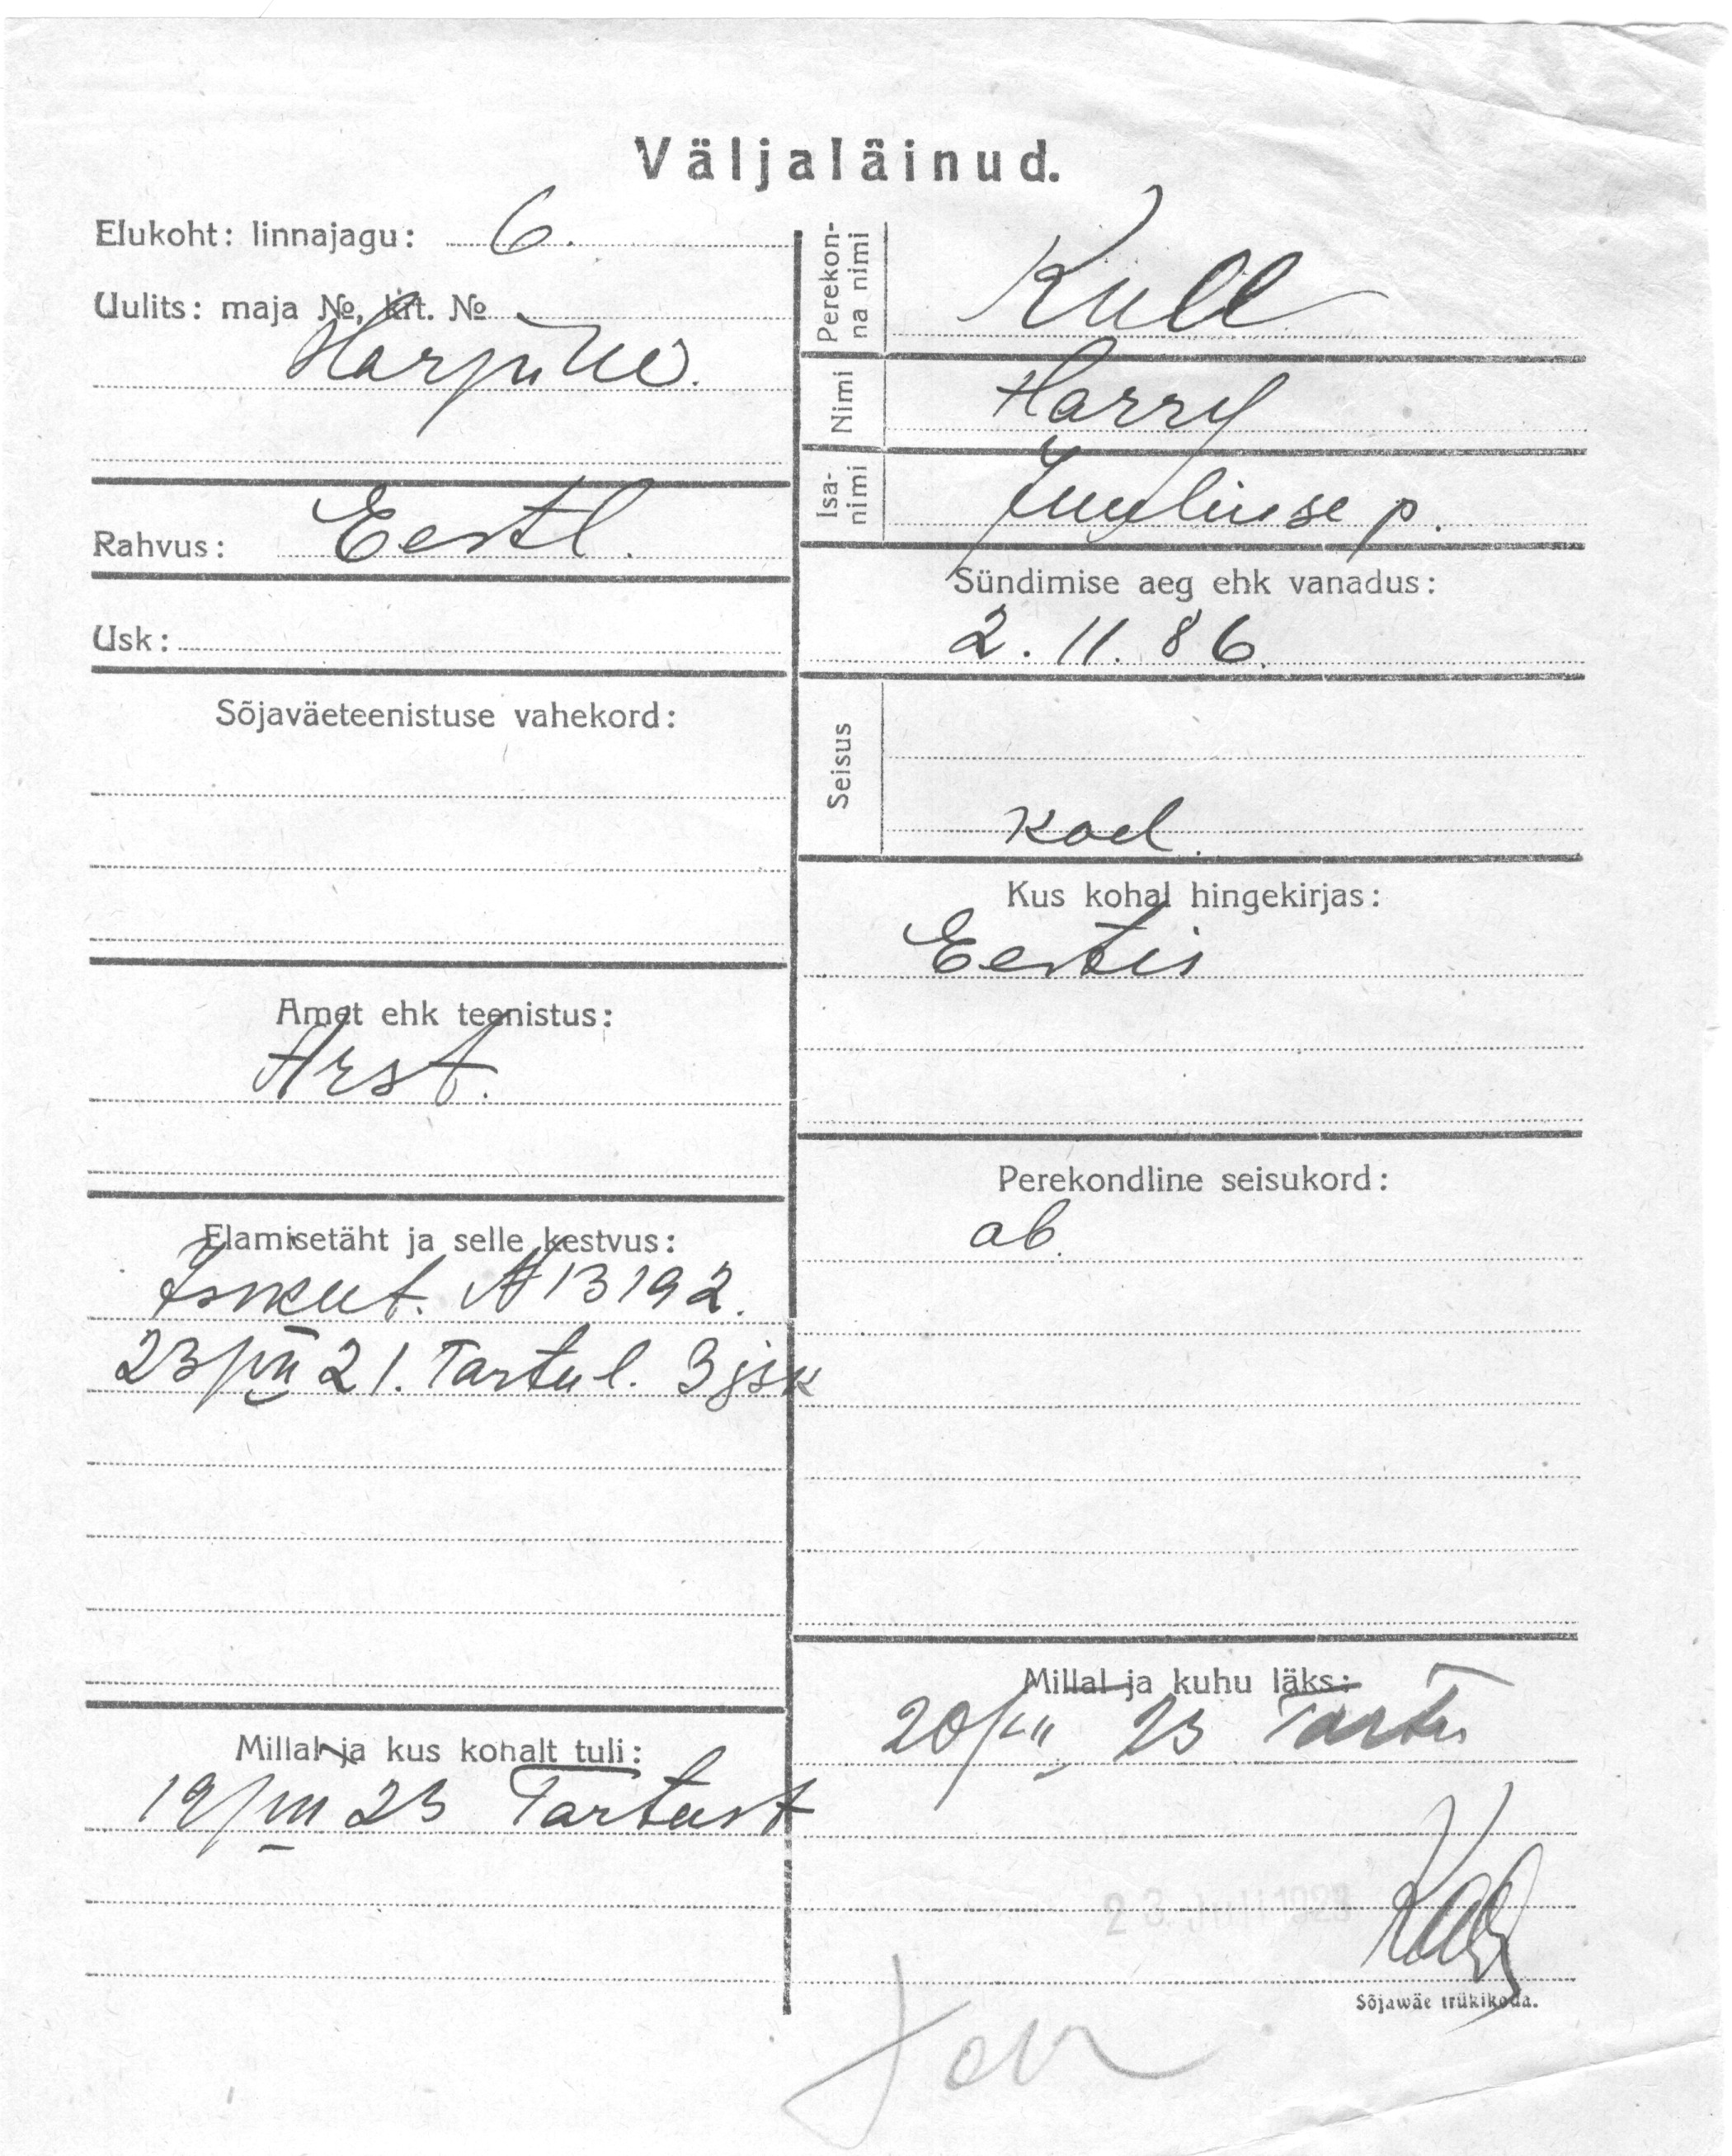 Väljaläinud.
Elukoht: linnajagu: 6.
Uulits: maja №, krt. №
Harju
Rahvus: Eestl.
Usk:
Sõjaväeteenistuse vahekord:
Amet ehk teenistus:
Arst.
Elamisetäht ja selle kestvus:
Isikut. N 13192.
23/VII 21. Tartu l. 3 jsk
Millal ja kus kohalt tuli:
19/VII 23 Tartust
Perekonna nimi
Kull
Nimi
Harry
Isanimi
Juuliuse p.
Sündimise aeg ehk vanadus:
2. 11. 86.
Seisus
kod.
Kus kohal hingekirjas:
Eestis
Perekondline seisukord:
ab.
Millal ja kuhu läks:
20/VII 23 Tartu
23. Juli 1923
Sõjawäe trükikoda.